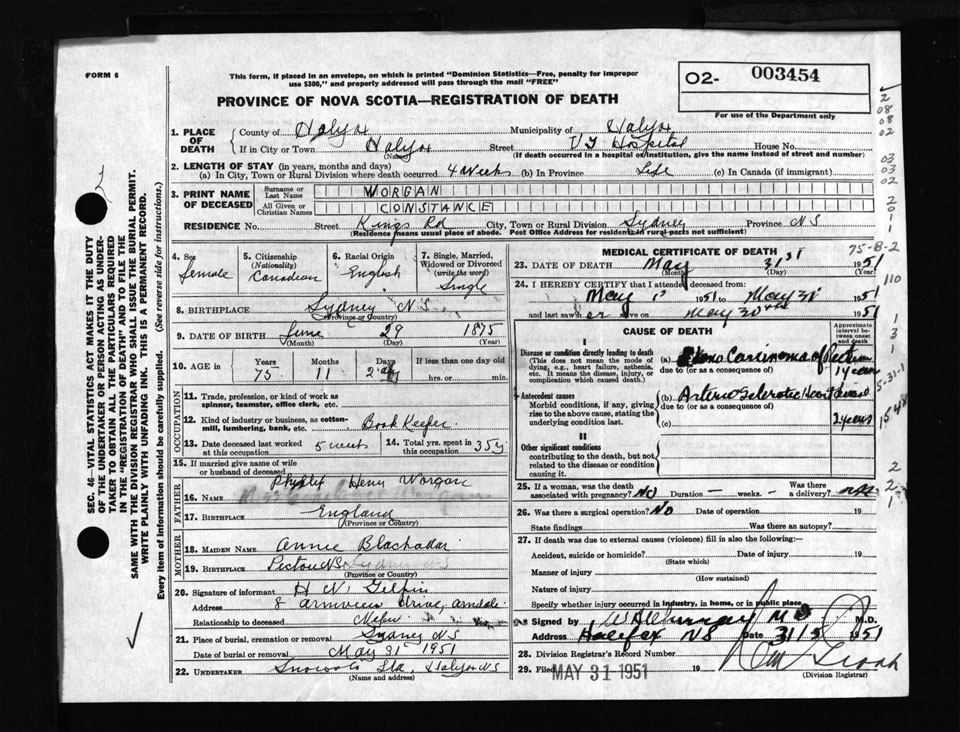 FORM 6
This form, if placed in an envelope, on which is printed "Dominion Statistics—Free, penalty for improper
use $300," and properly addressed will pass through the mail "FREE"
O2- 003454
For use of the Department only
PROVINCE OF NOVA SCOTIA—REGISTRATION OF DEATH
1. PLACE OF DEATH
County of Halifax Municipality of Halifax
If in City or Town Halifax Street V G Hospital House No.
(Name) (If death occurred in a hospital or institution, give the name instead of street and number)
2. LENGTH OF STAY (in years, months and days)
(a) In City, Town or Rural Division where death occurred 4 Weeks (b) In Province Life (c) In Canada (if immigrant)
3. PRINT NAME OF DECEASED
Surname or Last Name WORGAN
All Given or Christian Names CONSTANCE
RESIDENCE No. Street Kings Rd City, Town or Rural Division Sydney Province N S
(Residence means usual place of abode. Post Office Address for residents in rural parts not sufficient)
4. Sex Female
5. Citizenship (Nationality) Canadian
6. Racial Origin English
7. Single, Married, Widowed or Divorced (write the word) Single
8. BIRTHPLACE Sydney N S
(Province or Country)
9. DATE OF BIRTH June 29 1875
(Month) (Day) (Year)
10. AGE in Years Months Days If less than one day old
75 11 2 hrs. or min.
OCCUPATION
11. Trade, profession, or kind of work as
spinner, teamster, office clerk, etc.
12. Kind of industry or business, as cotton-
mill, lumbering, bank, etc. Book Keeper
13. Date deceased last worked at this occupation 5 weeks
14. Total yrs. spent in this occupation 35 y
15. If married give name of wife
or husband of deceased
FATHER
16. NAME Philip Henry Worgan
17. BIRTHPLACE England
(Province or Country)
MOTHER
18. MAIDEN NAME Annie Blachadar
19. BIRTHPLACE Pictou N S
(Province or Country)
20. Signature of informant H N
Address 8 Armview Drive, Armdale
Relationship to deceased
21. Place of burial, cremation or removal Sydney N S
Date of burial or removal May 31 1951
22. UNDERTAKER Snows Ltd, Halifax N S
(Name and address)
MEDICAL CERTIFICATE OF DEATH
75-B-2
23. DATE OF DEATH May 31st 1951
(Month) (Day) (Year)
24. I HEREBY CERTIFY that I attended deceased from:
May 1 1951 to May 31 1951
and last saw her alive on May 30th 1951
CAUSE OF DEATH
Approximate interval between onset and death
I
Disease or condition directly leading to death
(This does not mean the mode of
dying, e.g., heart failure, asthenia,
etc. It means the disease, injury, or
complication which caused death.)
(a) Carcinoma of Rectum
due to (or as a consequence of) 1 year
Antecedent causes
Morbid conditions, if any, giving
rise to the above cause, stating the
underlying condition last.
(b) Arterio Sclerotic Heart disease
due to (or as a consequence of)
(c) 2 years
II
Other significant conditions
contributing to the death, but not
related to the disease or condition
causing it.
25. If a woman, was the death
associated with pregnancy? No Duration — weeks. — Was there a delivery?
26. Was there a surgical operation? No Date of operation 19
State findings Was there an autopsy?
27. If death was due to external causes (violence) fill in also the following:—
Accident, suicide or homicide? Date of injury 19
Manner of injury
(How sustained)
Nature of injury
Specify whether injury occurred in industry, in home, or in public place
Signed by W A Murray M D M.D.
Address Halifax N S Date 31/5 1951
28. Division Registrar's Record Number
29. Filed MAY 31 1951 19
(Division Registrar)
SEC. 46—VITAL STATISTICS ACT MAKES IT THE DUTY
OF THE UNDERTAKER OR PERSON ACTING AS UNDER-
TAKER TO OBTAIN ALL THE PARTICULARS REQUIRED
IN THE "REGISTRATION OF DEATH" AND TO FILE THE
SAME WITH THE DIVISION REGISTRAR WHO SHALL ISSUE THE BURIAL PERMIT.
WRITE PLAINLY WITH UNFADING INK. THIS IS A PERMANENT RECORD.
Every item of information should be carefully supplied. (See reverse side for instructions.)
2
08
08
02
03
03
02
2
0
1
1
110
1
3
1
5-31-1
2
2
1